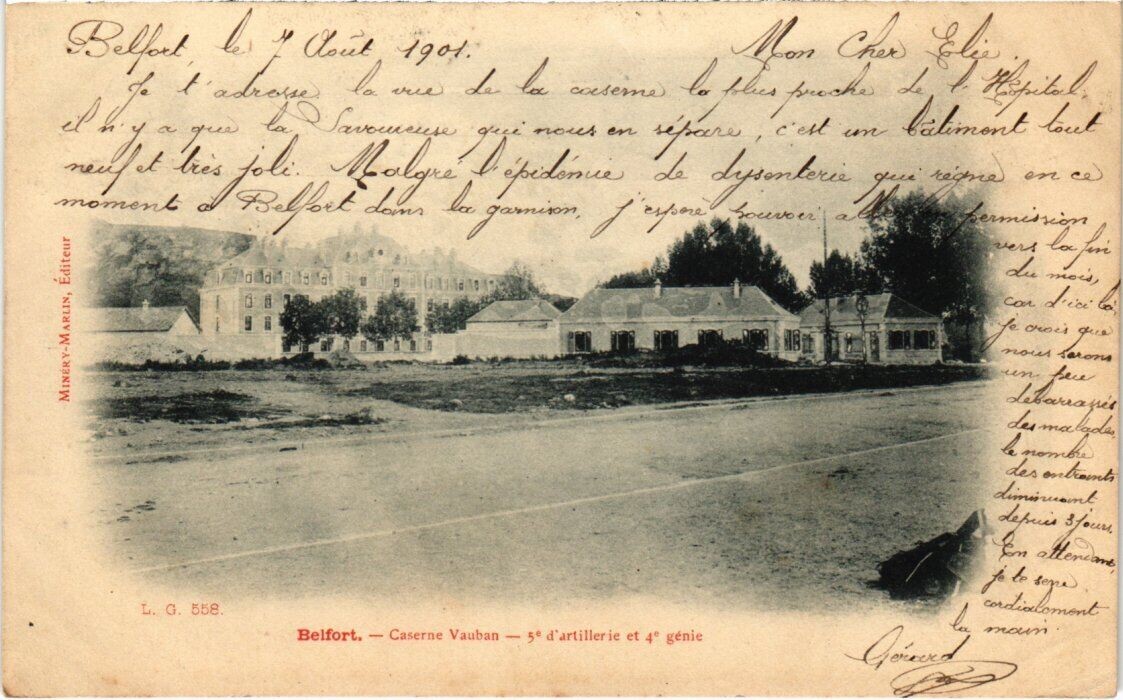 Belfort, le 7 Août 1901. Mon Cher Elie,
Je t'adresse la vue de la caserne la plus proche de l'Hôpital,
il n'y a que la Savoureuse qui nous en sépare, c'est un bâtiment tout
neuf et très joli. Malgré l'épidémie de dysenterie qui règne en ce
moment a Belfort dans la garnison, j'espère pouvoir aller en permission
vers la fin
du mois,
car d'ici là
je crois que
nous serons
un peu
débarrassés
des malades,
le nombre
des entrants
diminuant
depuis 3 jours.
En attendant,
je te serre
cordialement
la main.
Gérard
MINÉRY-MARLIN, Éditeur
L. G. 558.
Belfort. — Caserne Vauban — 5e d'artillerie et 4e génie